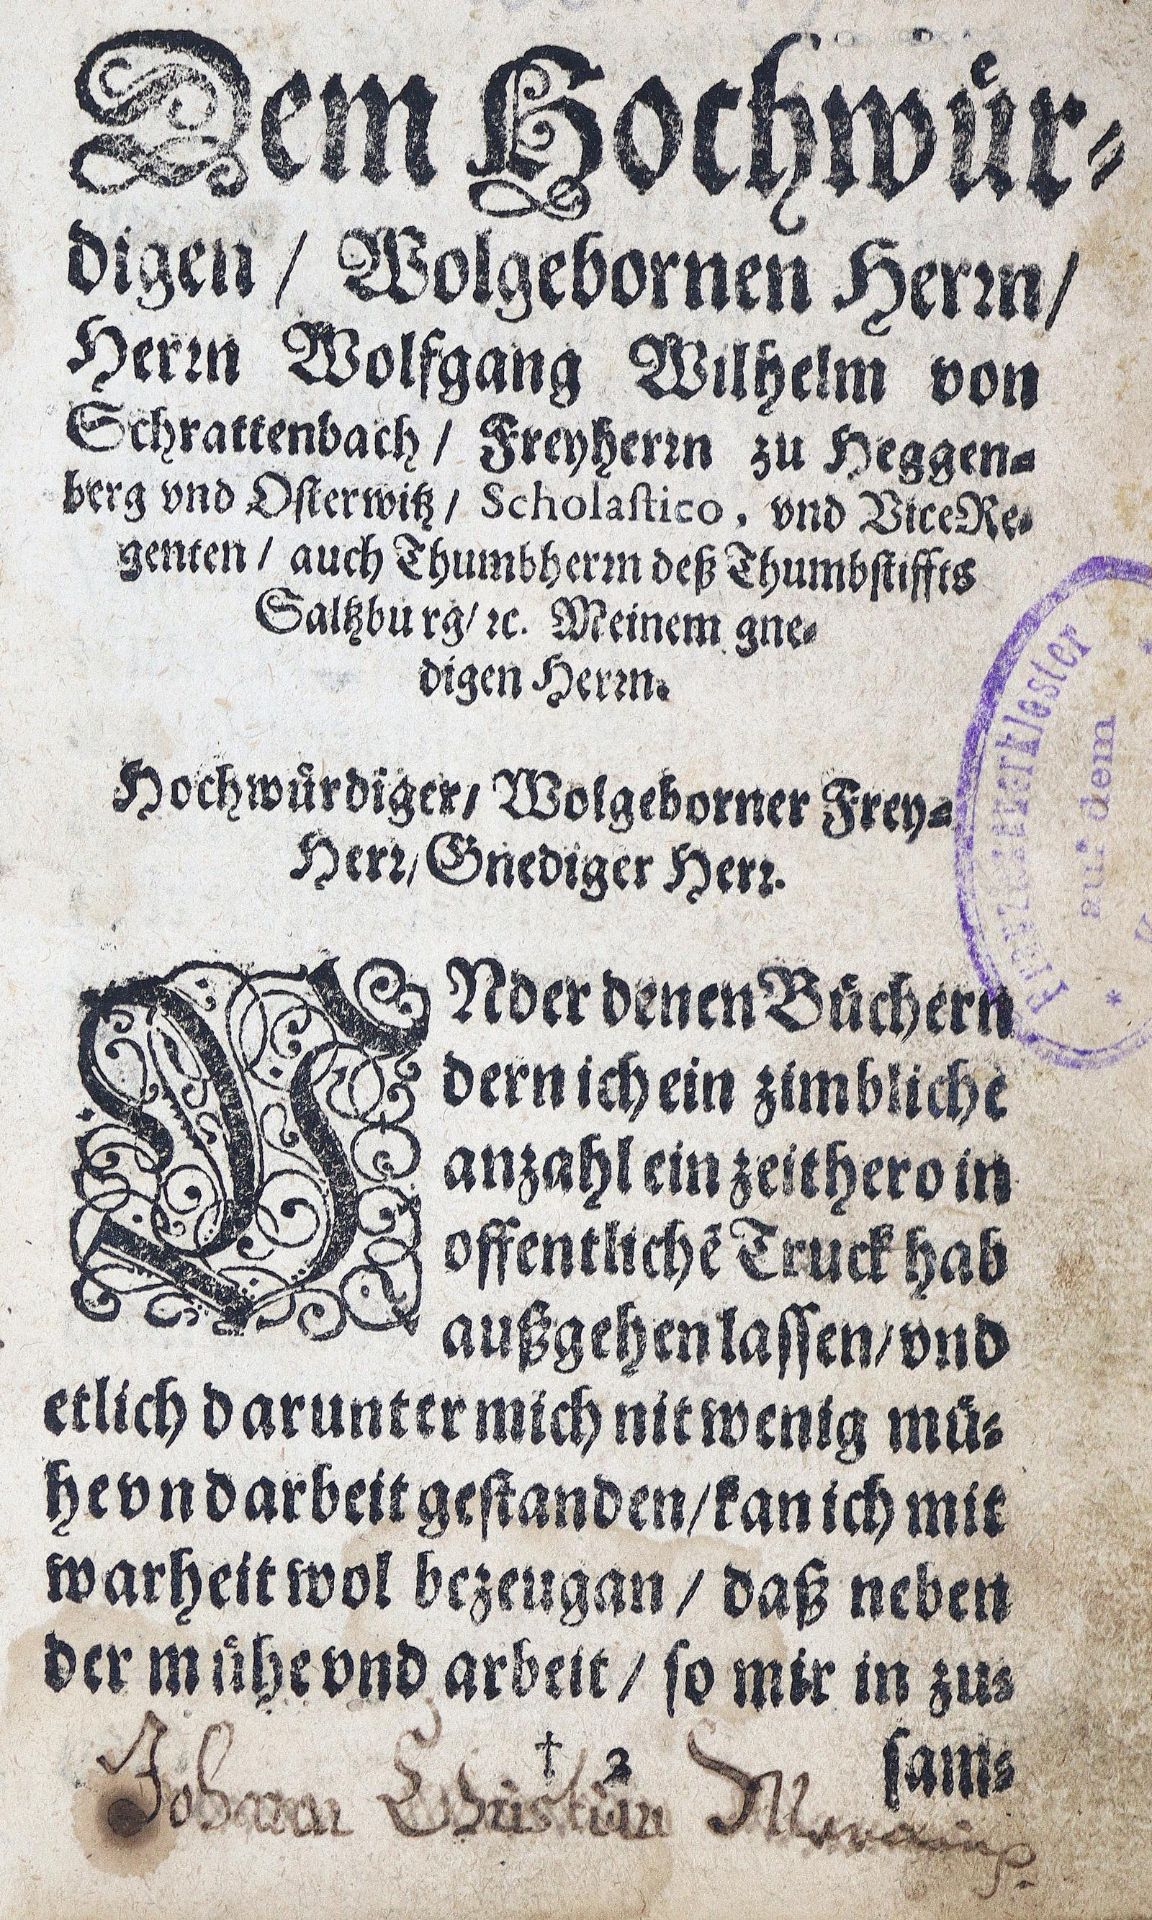 Dem Hochwuͤr⸗
digen / Wolgebornen Herꝛn /
Herꝛn Wolfgang Wilhelm von
Schrattenbach / Freyherꝛn zu Heggen⸗
berg vnd Oſterwitz / Scholaſtico, vnd ViceRe⸗
genten / auch Thumbherꝛn deß Thumbſtiffts
Saltzburg / ꝛc. Meinem gne⸗
digen Herꝛn.
Hochwuͤrdiger / Wolgeborner Frey⸗
Herꝛ / Gnediger Herꝛ.
VNder denen Buͤchern
dern ich ein zimbliche
anzahl ein zeithero in
offentlichē Truck hab
außgehen laſſen / vnd
etlich darunter mich nit wenig muͤ⸗
he vnd arbeit geſtanden / kan ich mit
warheit wol bezeugan / daß neben
der muͤhe vnd arbeit / ſo mir in zu⸗
† 3 ſam⸗
Johann Christian
Franziskanerkloster
auf dem